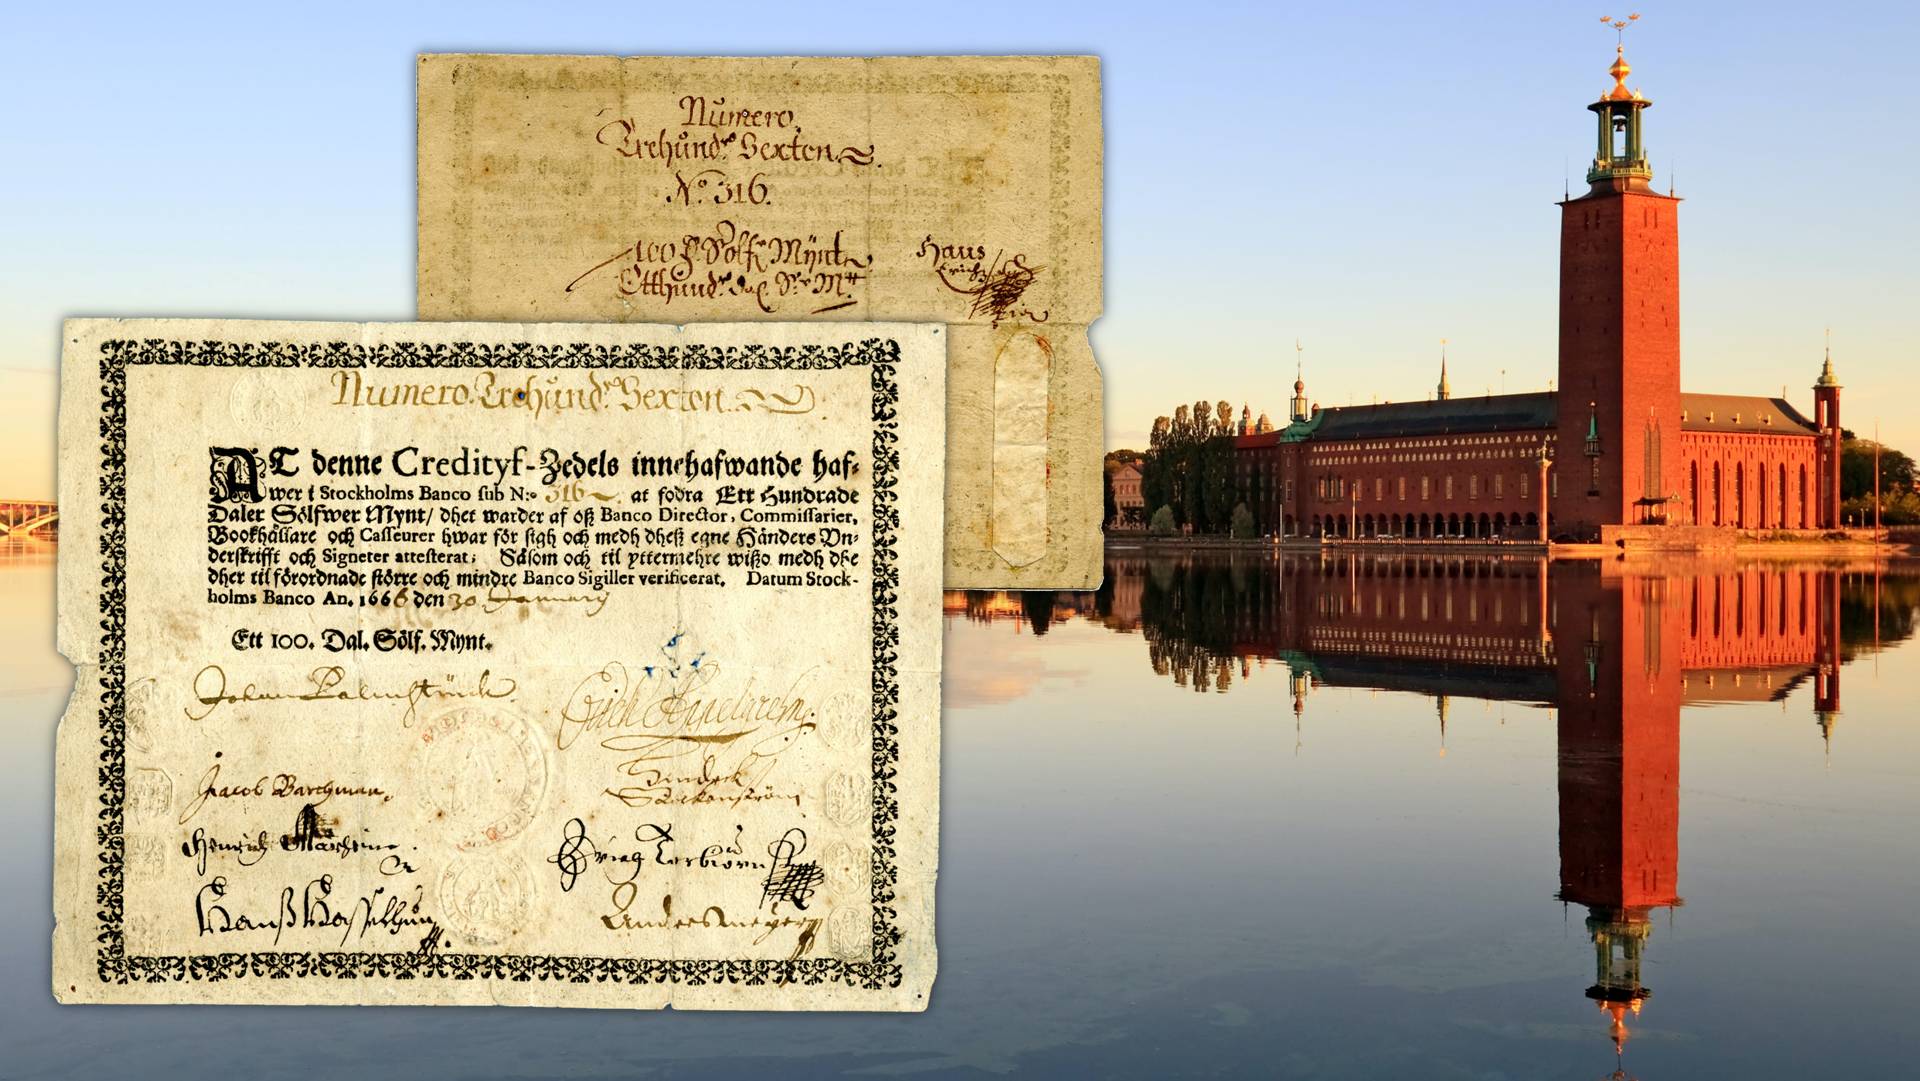 Numero.
Trehund.ᵉ Sexton.
N.º 316.
100 D. Sölf.ʳ Mÿnt.
Etthund.ᵉ Dal. S.ʳ M.ᵗ
Hans
Numero. Trehund.ᵉ Sexton.
AT denne Credityf-Zedels innehafwande haf-
wer i Stockholms Banco sub N:o 316 at fodra Ett Hundrade
Daler Sölfwer Mynt/ dhet warder af oß Banco Director, Commissarier,
Bookhållare och Casseurer hwar för sigh och medh dheß egne Händers Vn-
derskrifft och Signeter attesterat; Såsom och til yttermehre wißo medh dhe
dher til förordnade större och mindre Banco Sigiller verificerat. Datum Stock-
holms Banco An. 1666 den 30 January
Ett 100. Dal. Sölf. Mynt.
Johan Palmstruch
Jacob Barchman
Hendrick
Henrich
Hanß Hasselhun
Anders meÿer